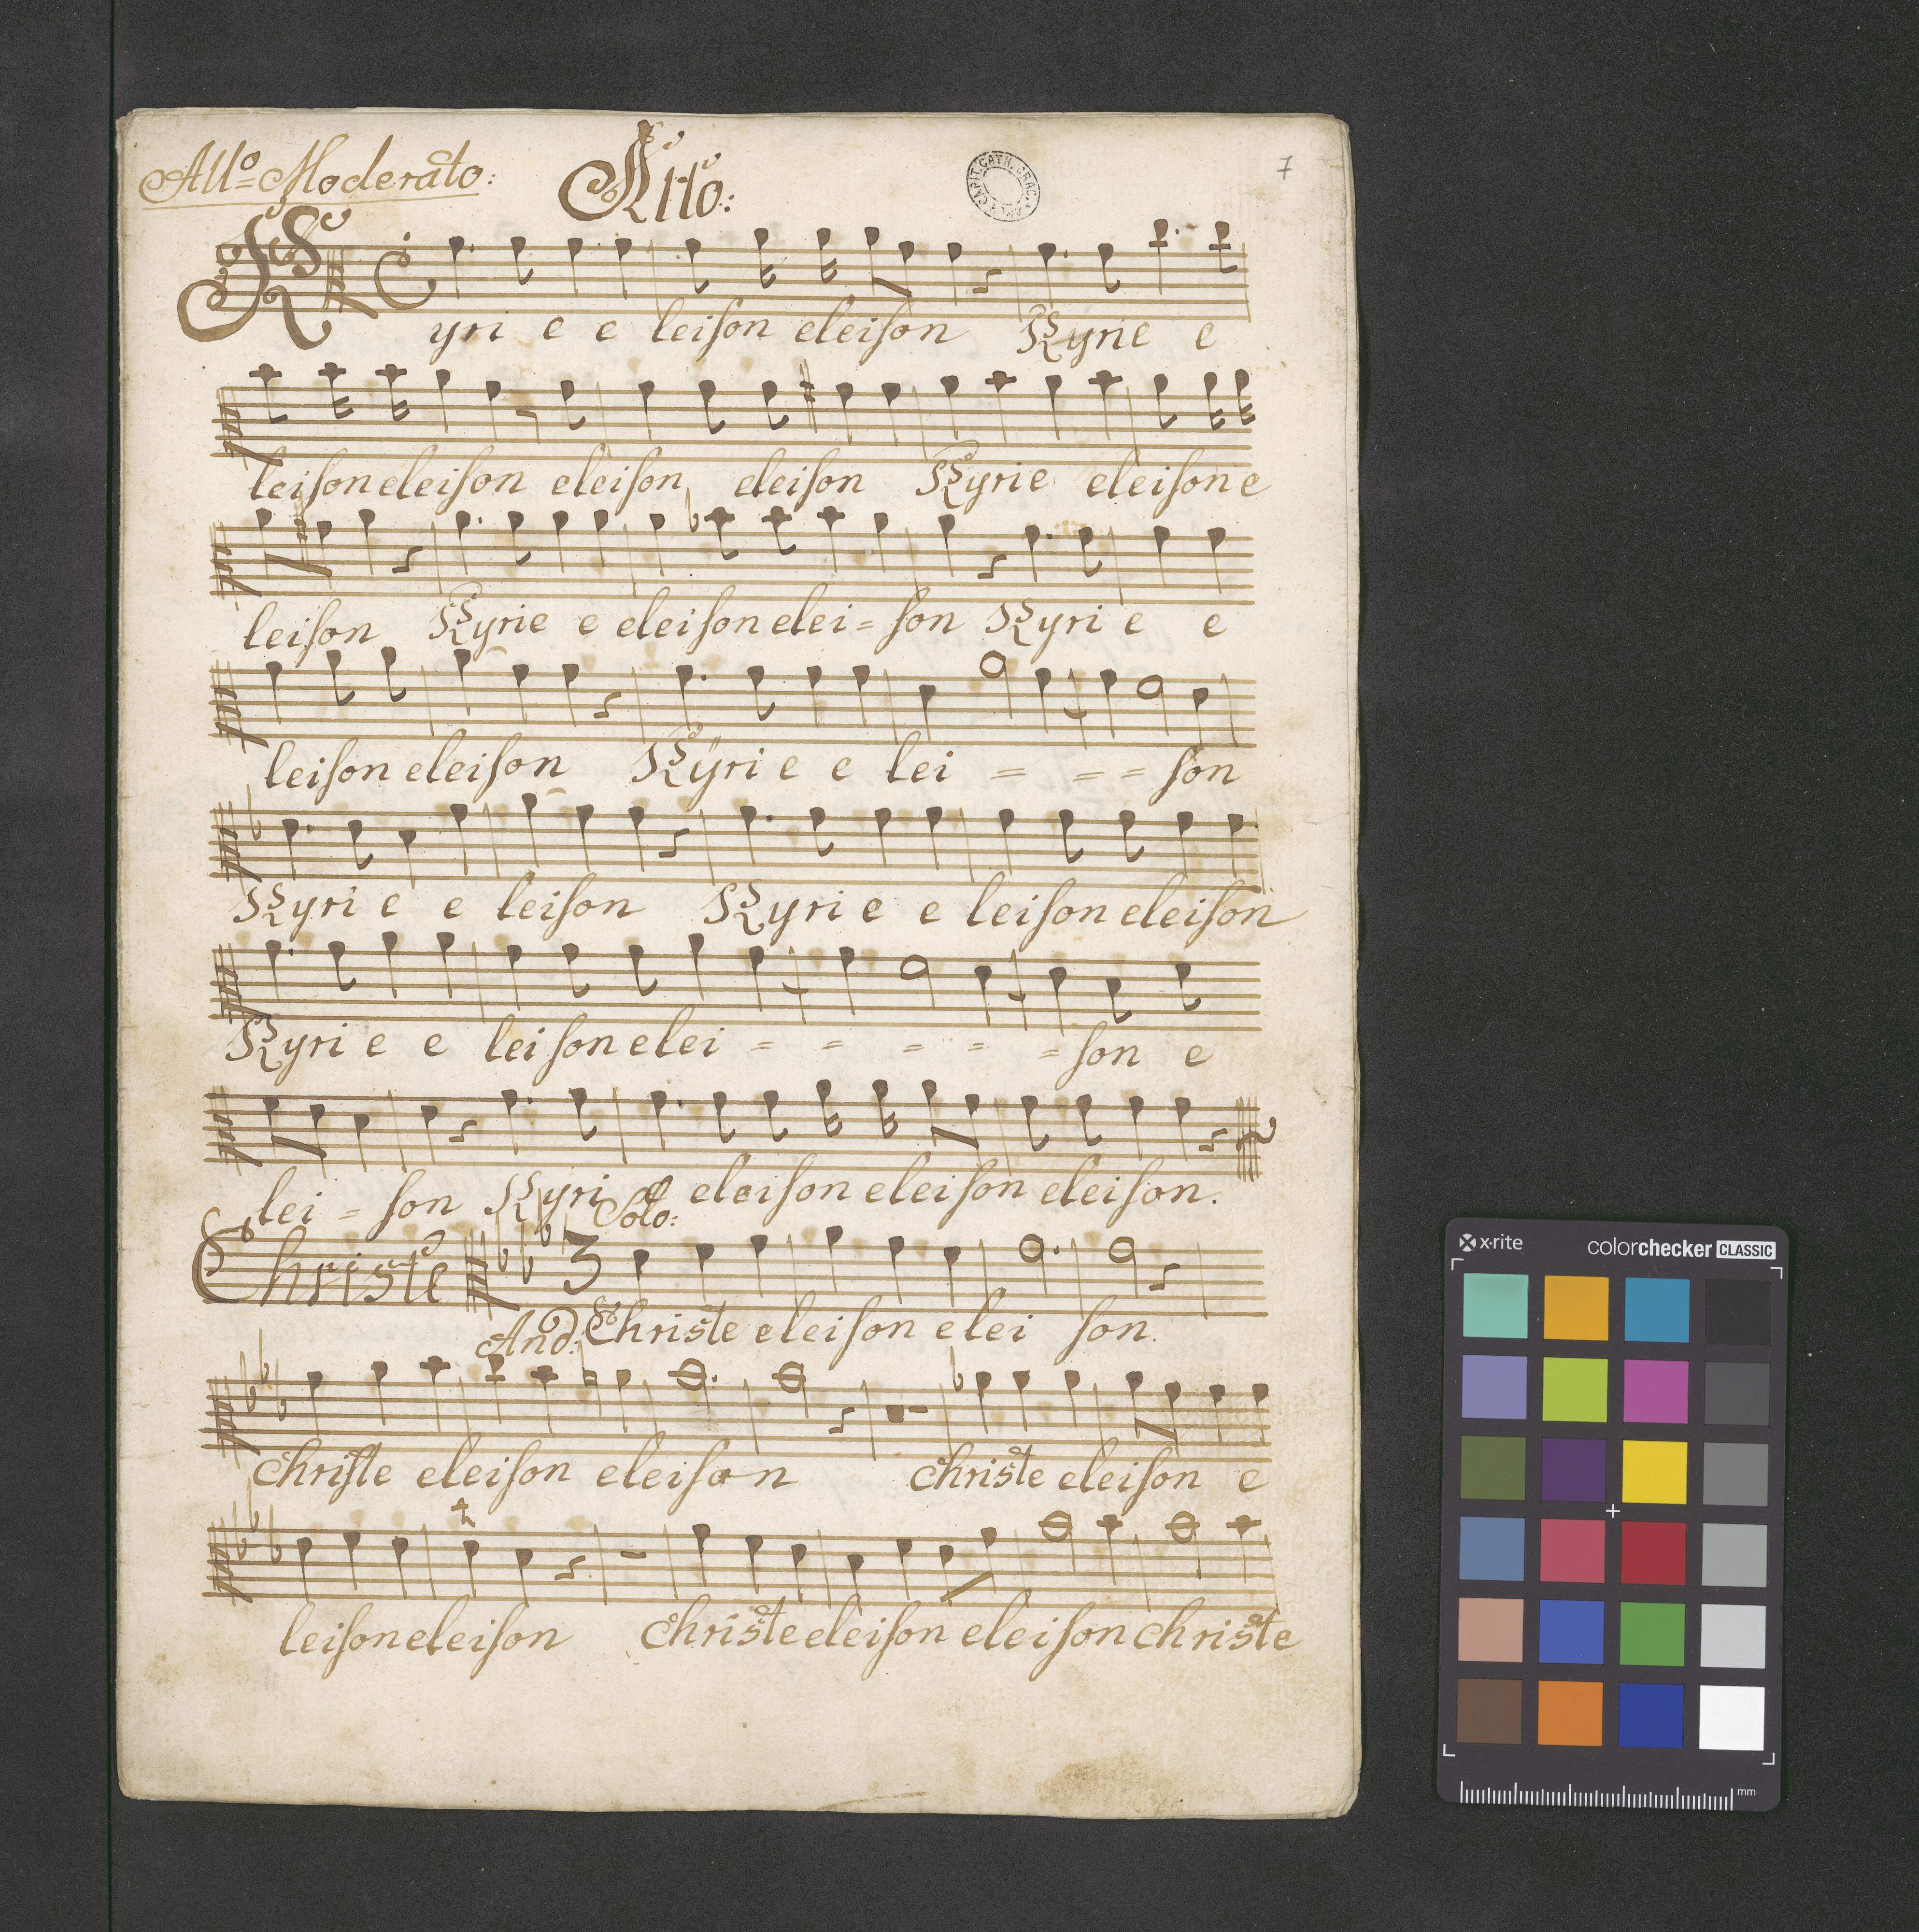 All:º Moderato:
Alto:
CAPIT. CATH. CRAC.
7
Kyri e e leiſon eleiſon Kyrie e
leiſon eleiſon eleiſon eleiſon Kyrie eleiſon e
leiſon Kyrie e eleiſon elei = ſon Kyri e e
leiſon eleiſon Kÿri e e lei = = = ſon
Kyri e e leiſon Kyri e e leiſon eleiſon
Kyri e e leiſon elei = = = = = ſon e
lei = ſon Kyri eleiſon eleiſon eleiſon.
Solo:
Christe 3
And: Christe eleiſon elei ſon.
Chriſte eleiſon eleiſon Christe eleiſon e
leiſon eleiſon Christe eleiſon eleiſon christe
x·rite
colorchecker CLASSIC
mm